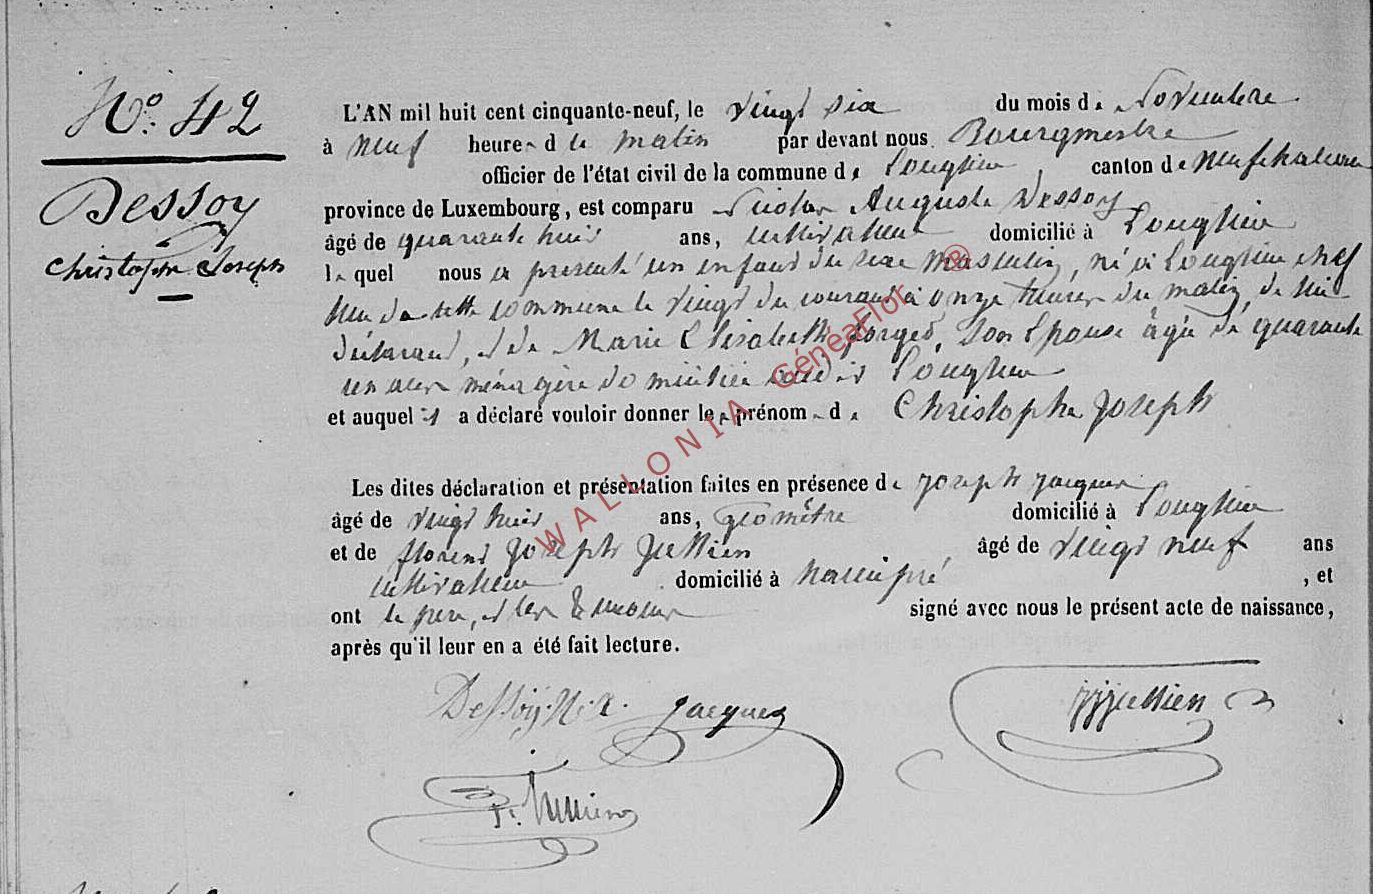 N° 42
Dessoy
Christophe Joseph
L'AN mil huit cent cinquante-neuf, le vingt six du mois de Novembre
à neuf heures du matin par devant nous Bourgmestre
officier de l'état civil de la commune de Longlier, canton de Neufchateau
province de Luxembourg, est comparu Nicolas Auguste Dessoy
âgé de quarante huit ans, cultivateur domicilié à Longlier
lequel nous a présenté un enfant du sexe masculin, né à Longlier chef
lieu de cette commune le vingt du courant à onze heures du matin, de lui
déclarant, et de Marie Elisabeth Forged, son Epouse âgée de quarante
un ans ménagère domiciliée à Longlier
et auquel il a déclaré vouloir donner les prénoms de Christophe Joseph
Les dites déclaration et présentation faites en présence de Joseph Jacques
âgé de vingt huit ans, géomètre domicilié à Longlier
et de florent Joseph Jullien, âgé de vingt neuf ans
cultivateur domicilié à hamipré, et
ont le père, et les témoins signé avec nous le présent acte de naissance,
après qu'il leur en a été fait lecture.
Dessoy. N. A. Jacques Jullien
WALLONIA GénéaFlor ®